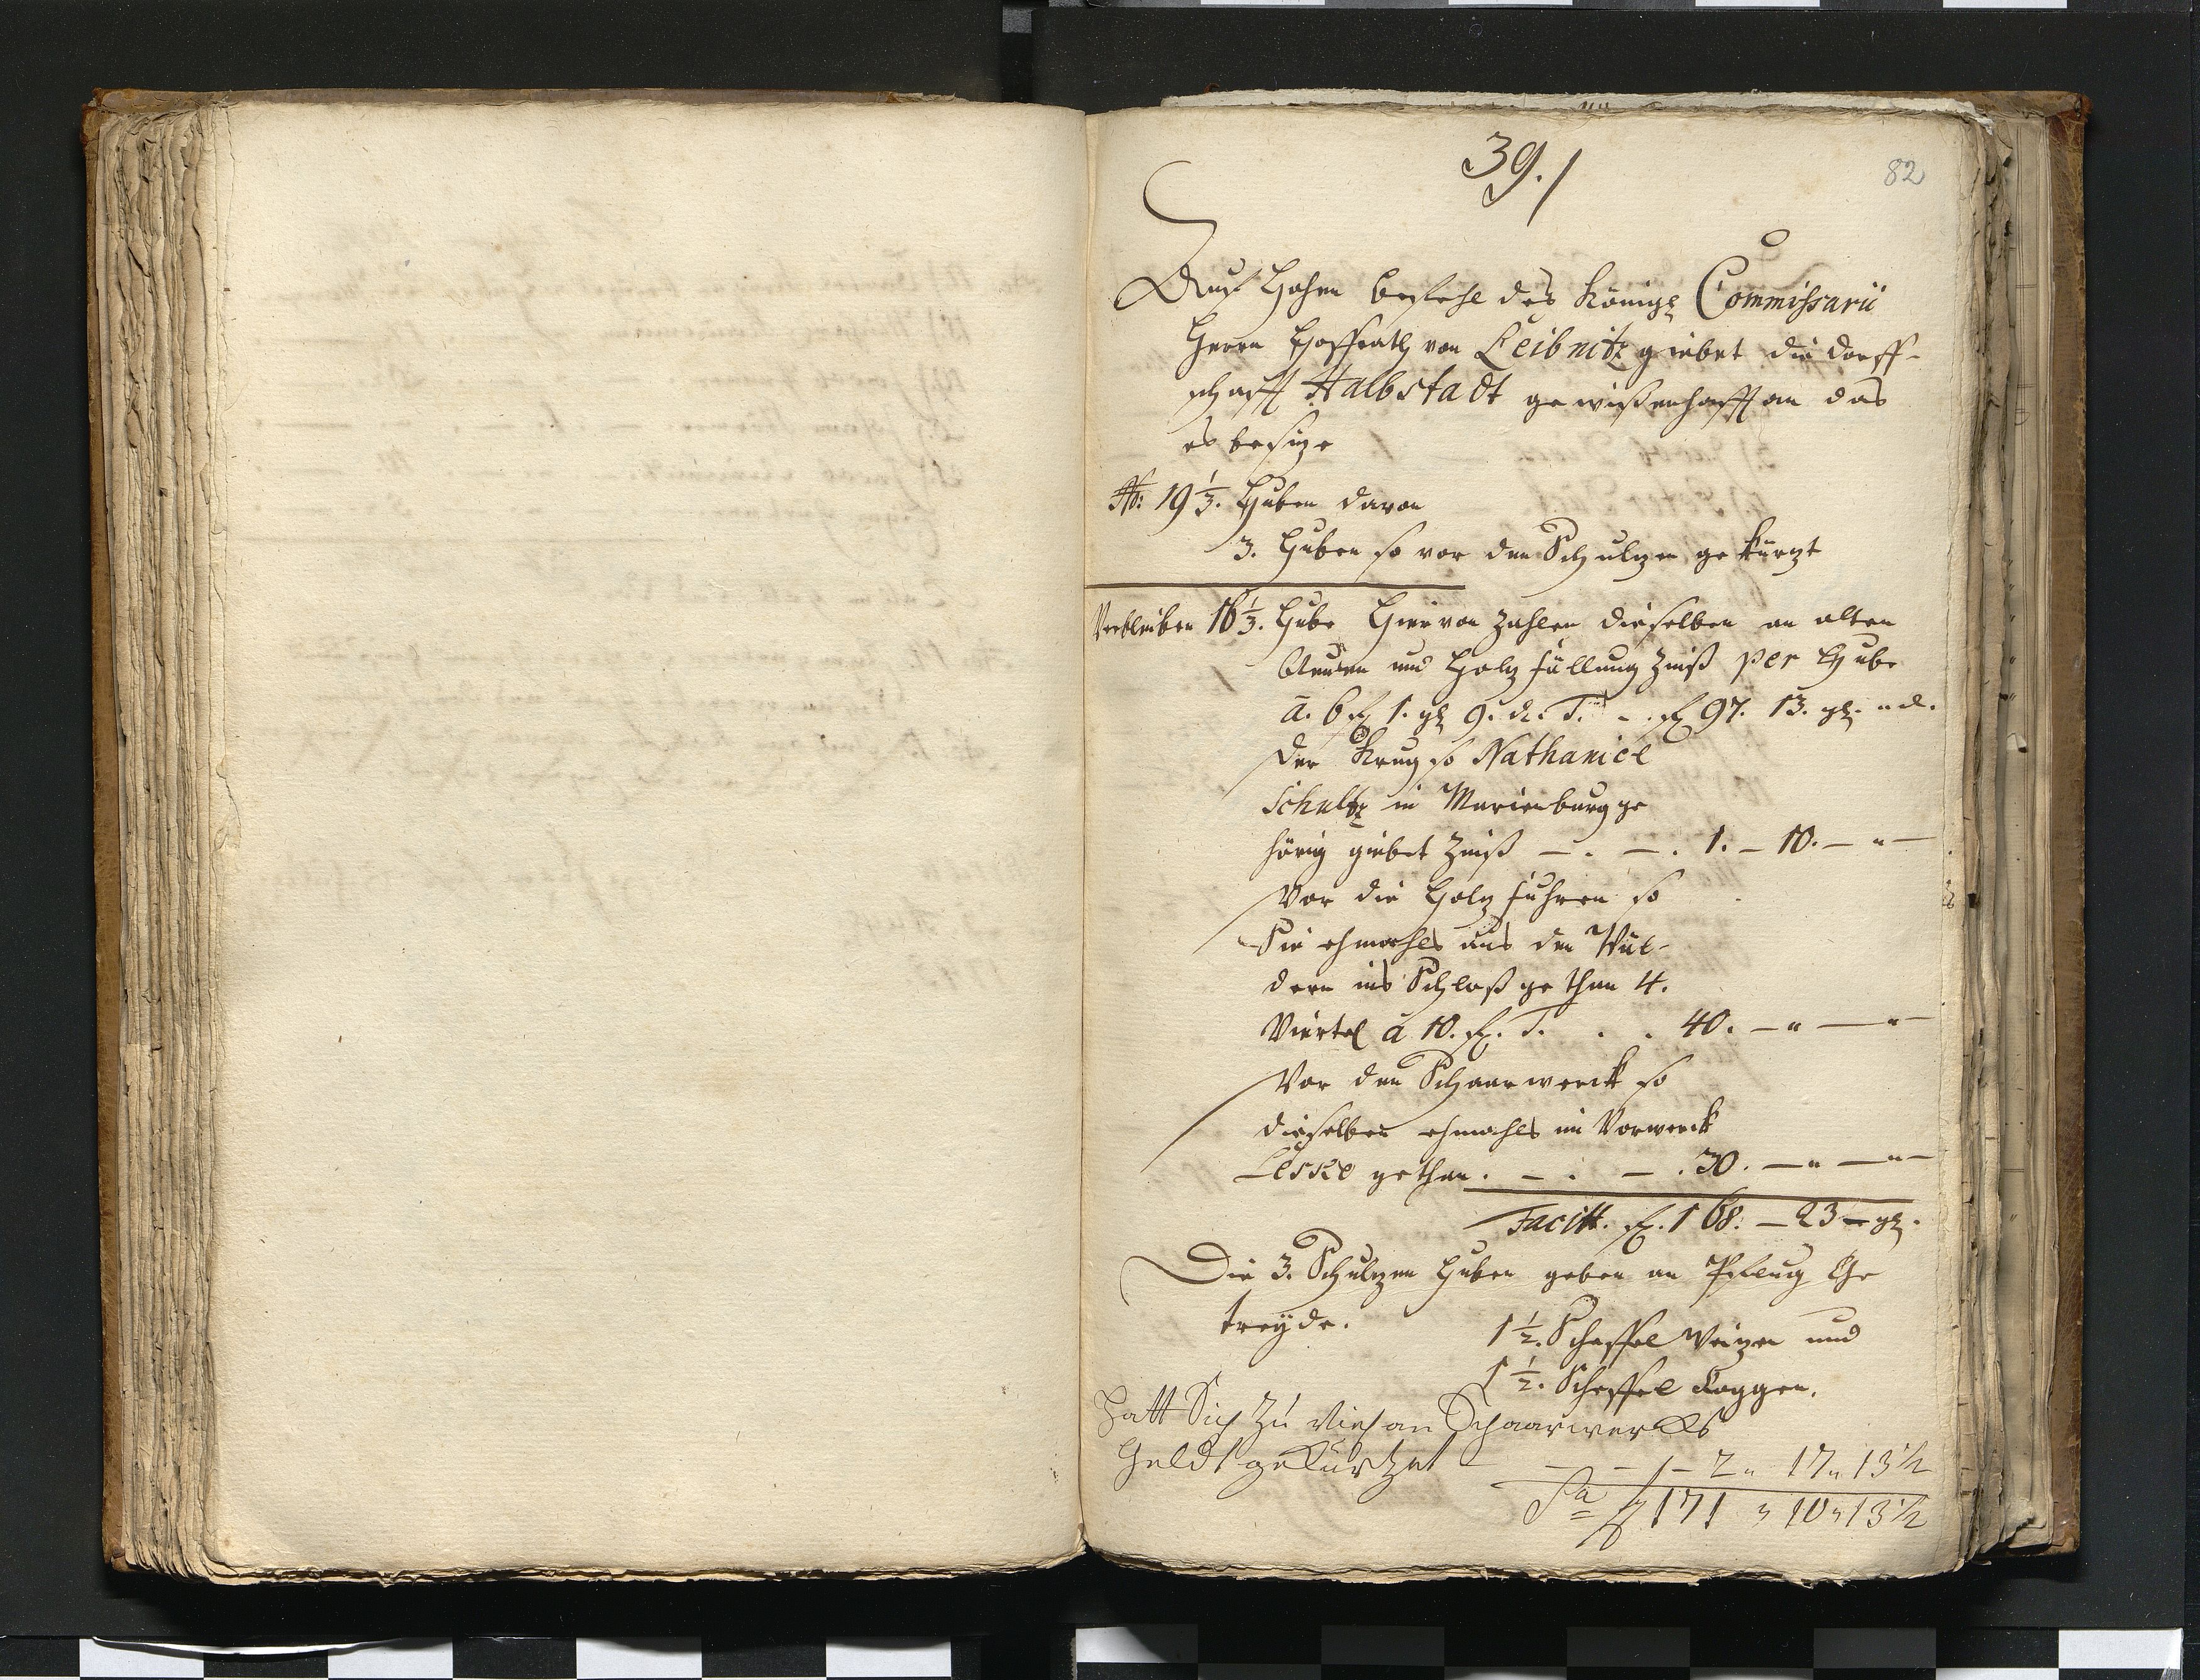 39./
82
Auf Hohen befehl des Königl Commissarii
Herrn Hoffrath von Leibnitz giebet die dorff-
schafft Halbstadt gewißenhafft an das
es besize
No: 19 1/3. Huben davon
3. Huben so vor den Schulzen gekürzt
Verbleiben 16 1/3. Hube Hiervon zahlen dieselben an alten
Neuen und Holz fällung Zinß per Hube
a. 6 f 1. gl 9. d. T. - . f 97. 13. gl. " d.
Der Krug so Nathaniel
Schultz in Marienburg ge
hörig giebet Zinß — . — . 1. — 10. — " —
Vor die Holz fuhren so
Sie ehmahls aus den Wäl-
dern ins Schloß gethan 4.
Viertel a 10. f. T. . . 40. — " — " —
Vor den Schaarwerck so
dieselben ehmahls im Vorwerck
Leske gethan. — . — . 30. — " — " —
Facitt. f. 168. — 23 — gl.
Die 3. Schulzen Huben geben an Pflug Ge
treyde.
1 1/2. Scheffel Weizen und
1 1/2. Scheffel Roggen.
Hatt Sich zu viel an Schaarwercks
Geldt gekürtzet - - - 2 " 17 " 13 1/2
Sa f 171 " 10 " 13 1/2